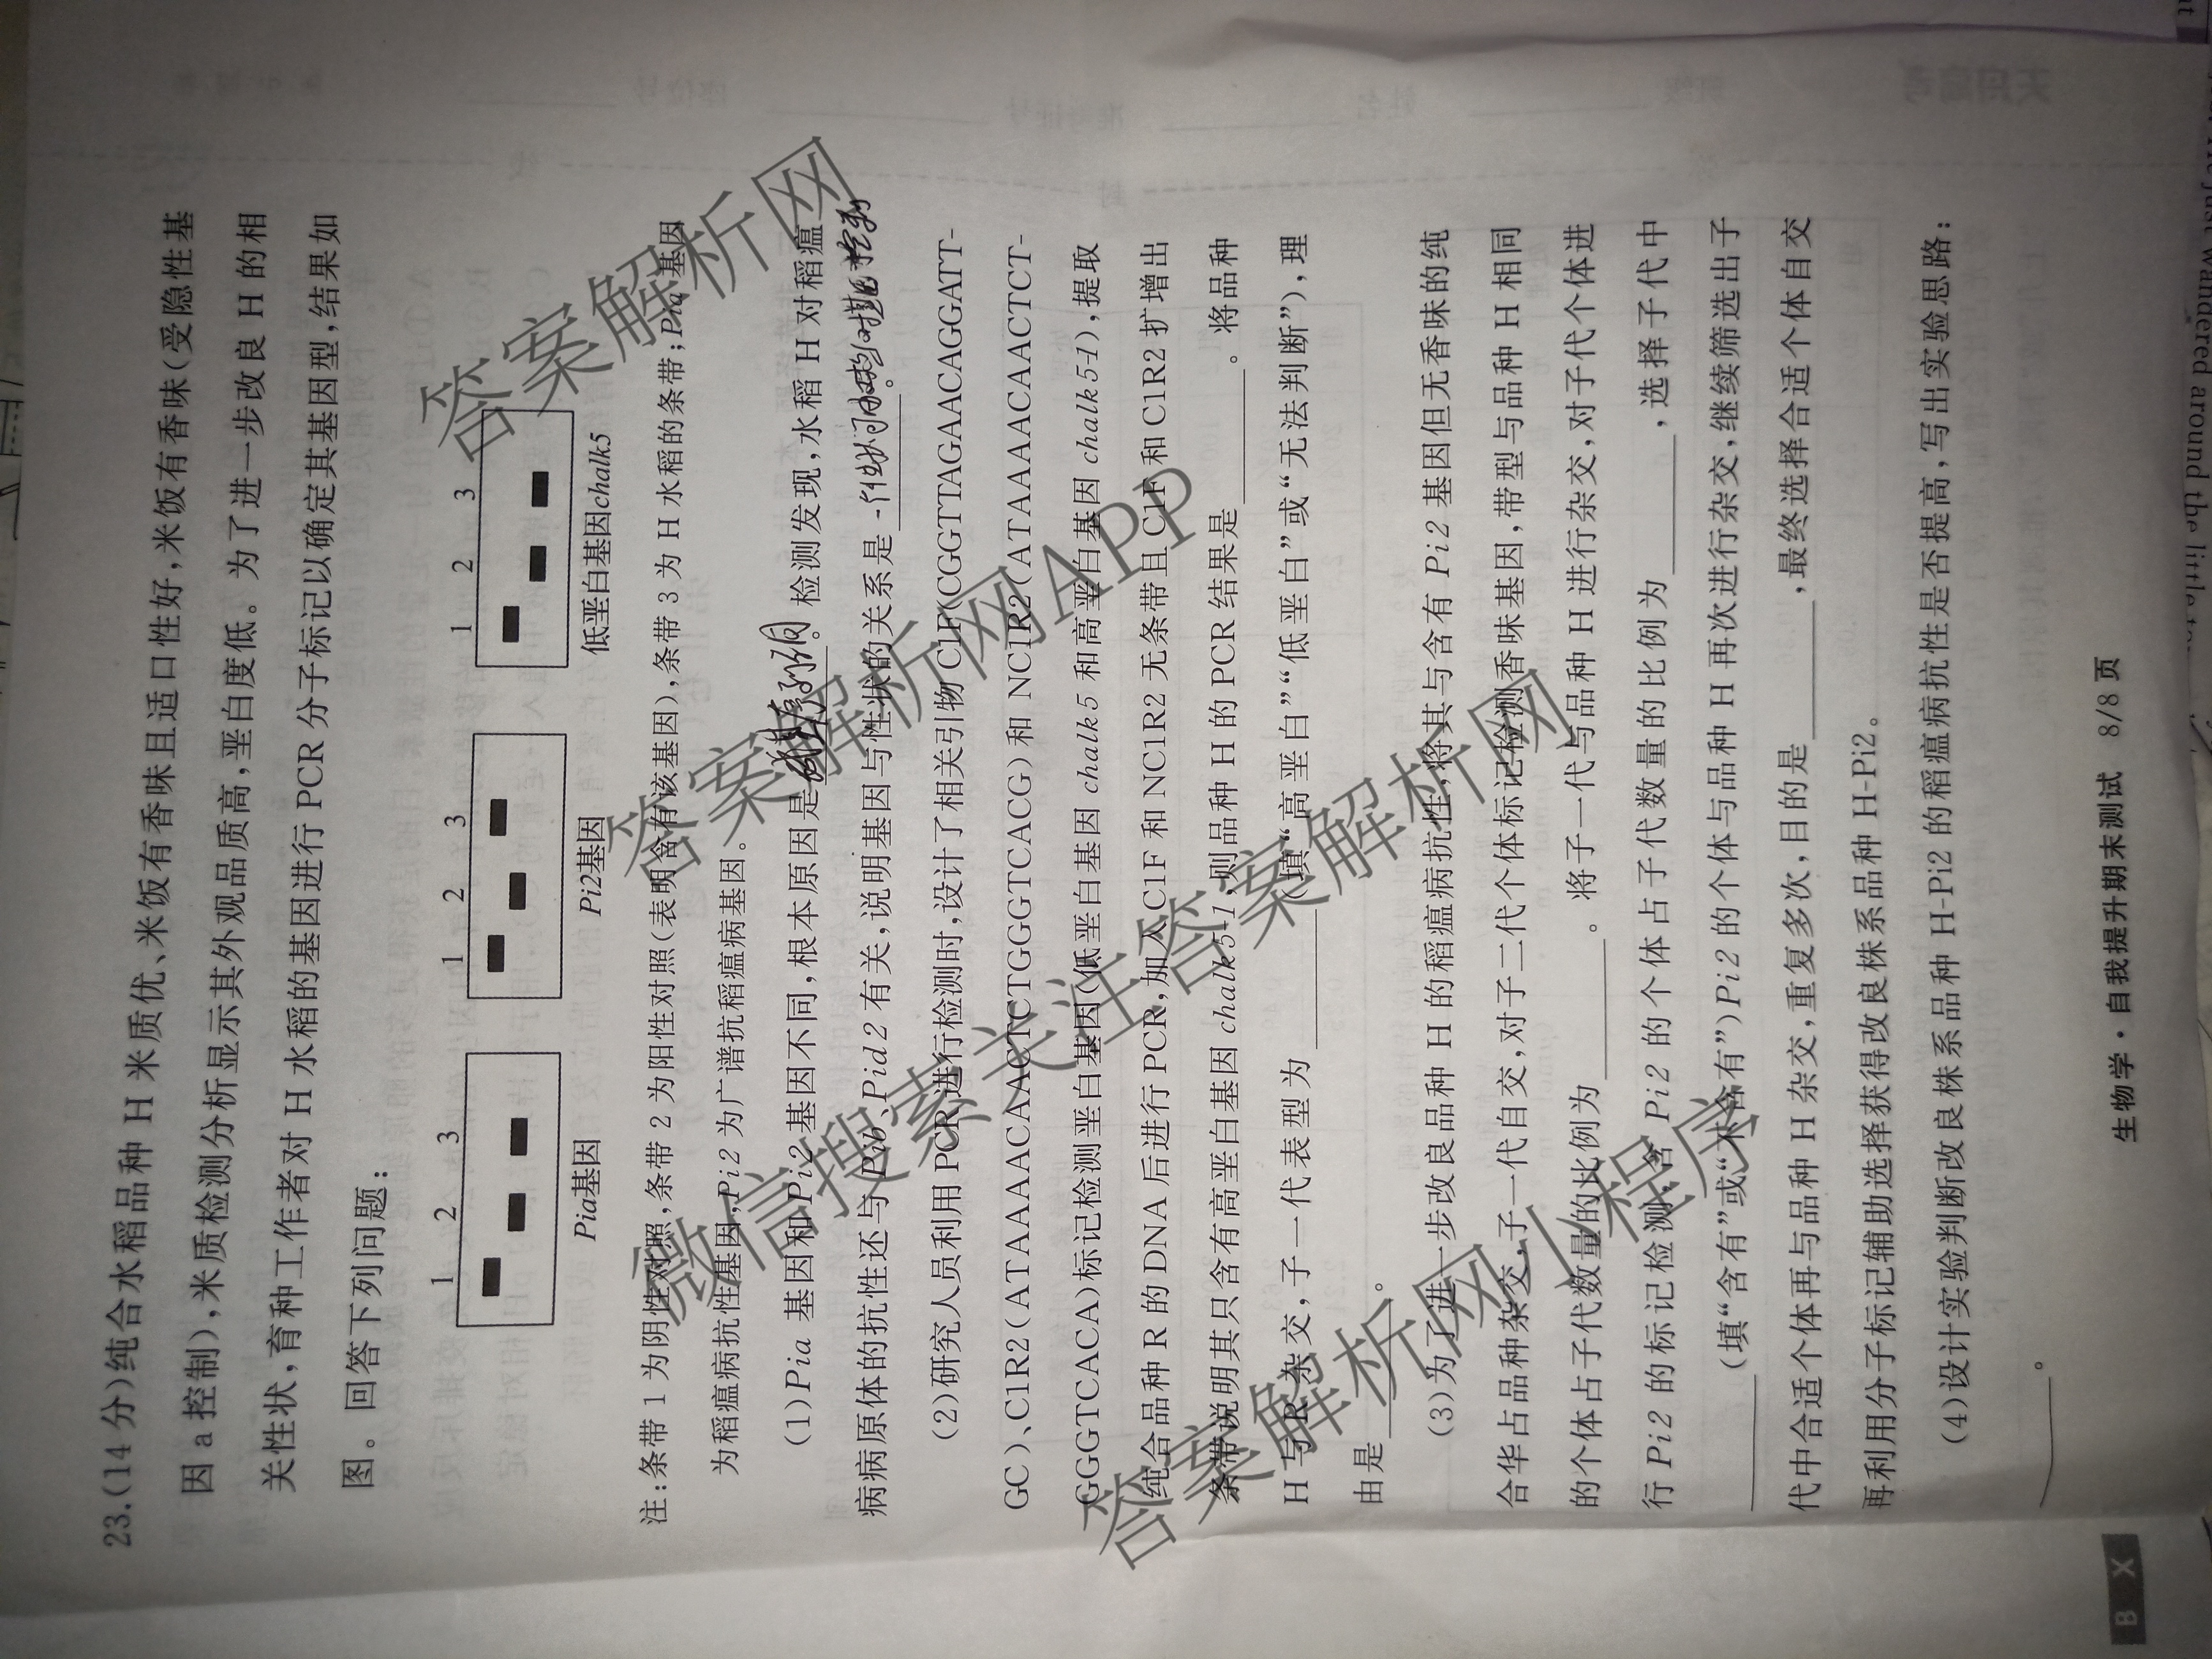 23.(14分)纯合水稻品种 H 米质优、米饭有香味且适口性好,米饭有香味(受隐性基
因 a 控制),米质检测分析显示其外观品质高,垩白度低。为了进一步改良 H 的相
关性状,育种工作者对 H 水稻的基因进行 PCR 分子标记以确定其基因型,结果如
图。回答下列问题:
1 2 3
Pia基因
1 2 3
Pi2基因
1 2 3
低垩白基因chalk5
注:条带 1 为阴性对照,条带 2 为阳性对照(表明含有该基因),条带 3 为 H 水稻的条带;Pia 基因
为稻瘟病抗性基因,Pi2 为广谱抗稻瘟病基因。
(1)Pia 基因和 Pi2 基因不同,根本原因是 。检测发现,水稻 H 对稻瘟
病病原体的抗性还与 Pib、Pid2 有关,说明基因与性状的关系是 。
(2)研究人员利用 PCR 进行检测时,设计了相关引物 C1F(CGGTTAGAACAGGATT-
GC)、C1R2(ATAAAACAACTCTGGGTCACG)和 NC1R2(ATAAAACAACTCT-
GGGTCACA)标记检测垩白基因(低垩白基因 chalk5 和高垩白基因 chalk5-1),提取
纯合品种 R 的 DNA 后进行 PCR,加入 C1F 和 NC1R2 无条带且 C1F 和 C1R2 扩增出
条带说明其只含有高垩白基因 chalk5-1,则品种 H 的 PCR 结果是 。将品种
H 与 R 杂交,子一代表型为 (填“高垩白”“低垩白”或“无法判断”),理
由是 。
(3)为了进一步改良品种 H 的稻瘟病抗性,将其与含有 Pi2 基因但无香味的纯
合华占品种杂交,子一代自交,对子二代个体标记检测香味基因,带型与品种 H 相同
的个体占子代数量的比例为 。将子一代与品种 H 进行杂交,对子代个体进
行 Pi2 的标记检测,含 Pi2 的个体占子代数量的比例为 ,选择子代中
(填“含有”或“不含有”)Pi2 的个体与品种 H 再次进行杂交,继续筛选出子
代中合适个体再与品种 H 杂交,重复多次,目的是 ,最终选择合适个体自交
再利用分子标记辅助选择获得改良株系品种 H-Pi2。
(4)设计实验判断改良株系品种 H-Pi2 的稻瘟病抗性是否提高,写出实验思路:
。
生物学·自我提升期末测试 8/8 页
B X
答案解析网
答案解析网APP
微信搜索关注答案解析网
答案解析网小程序